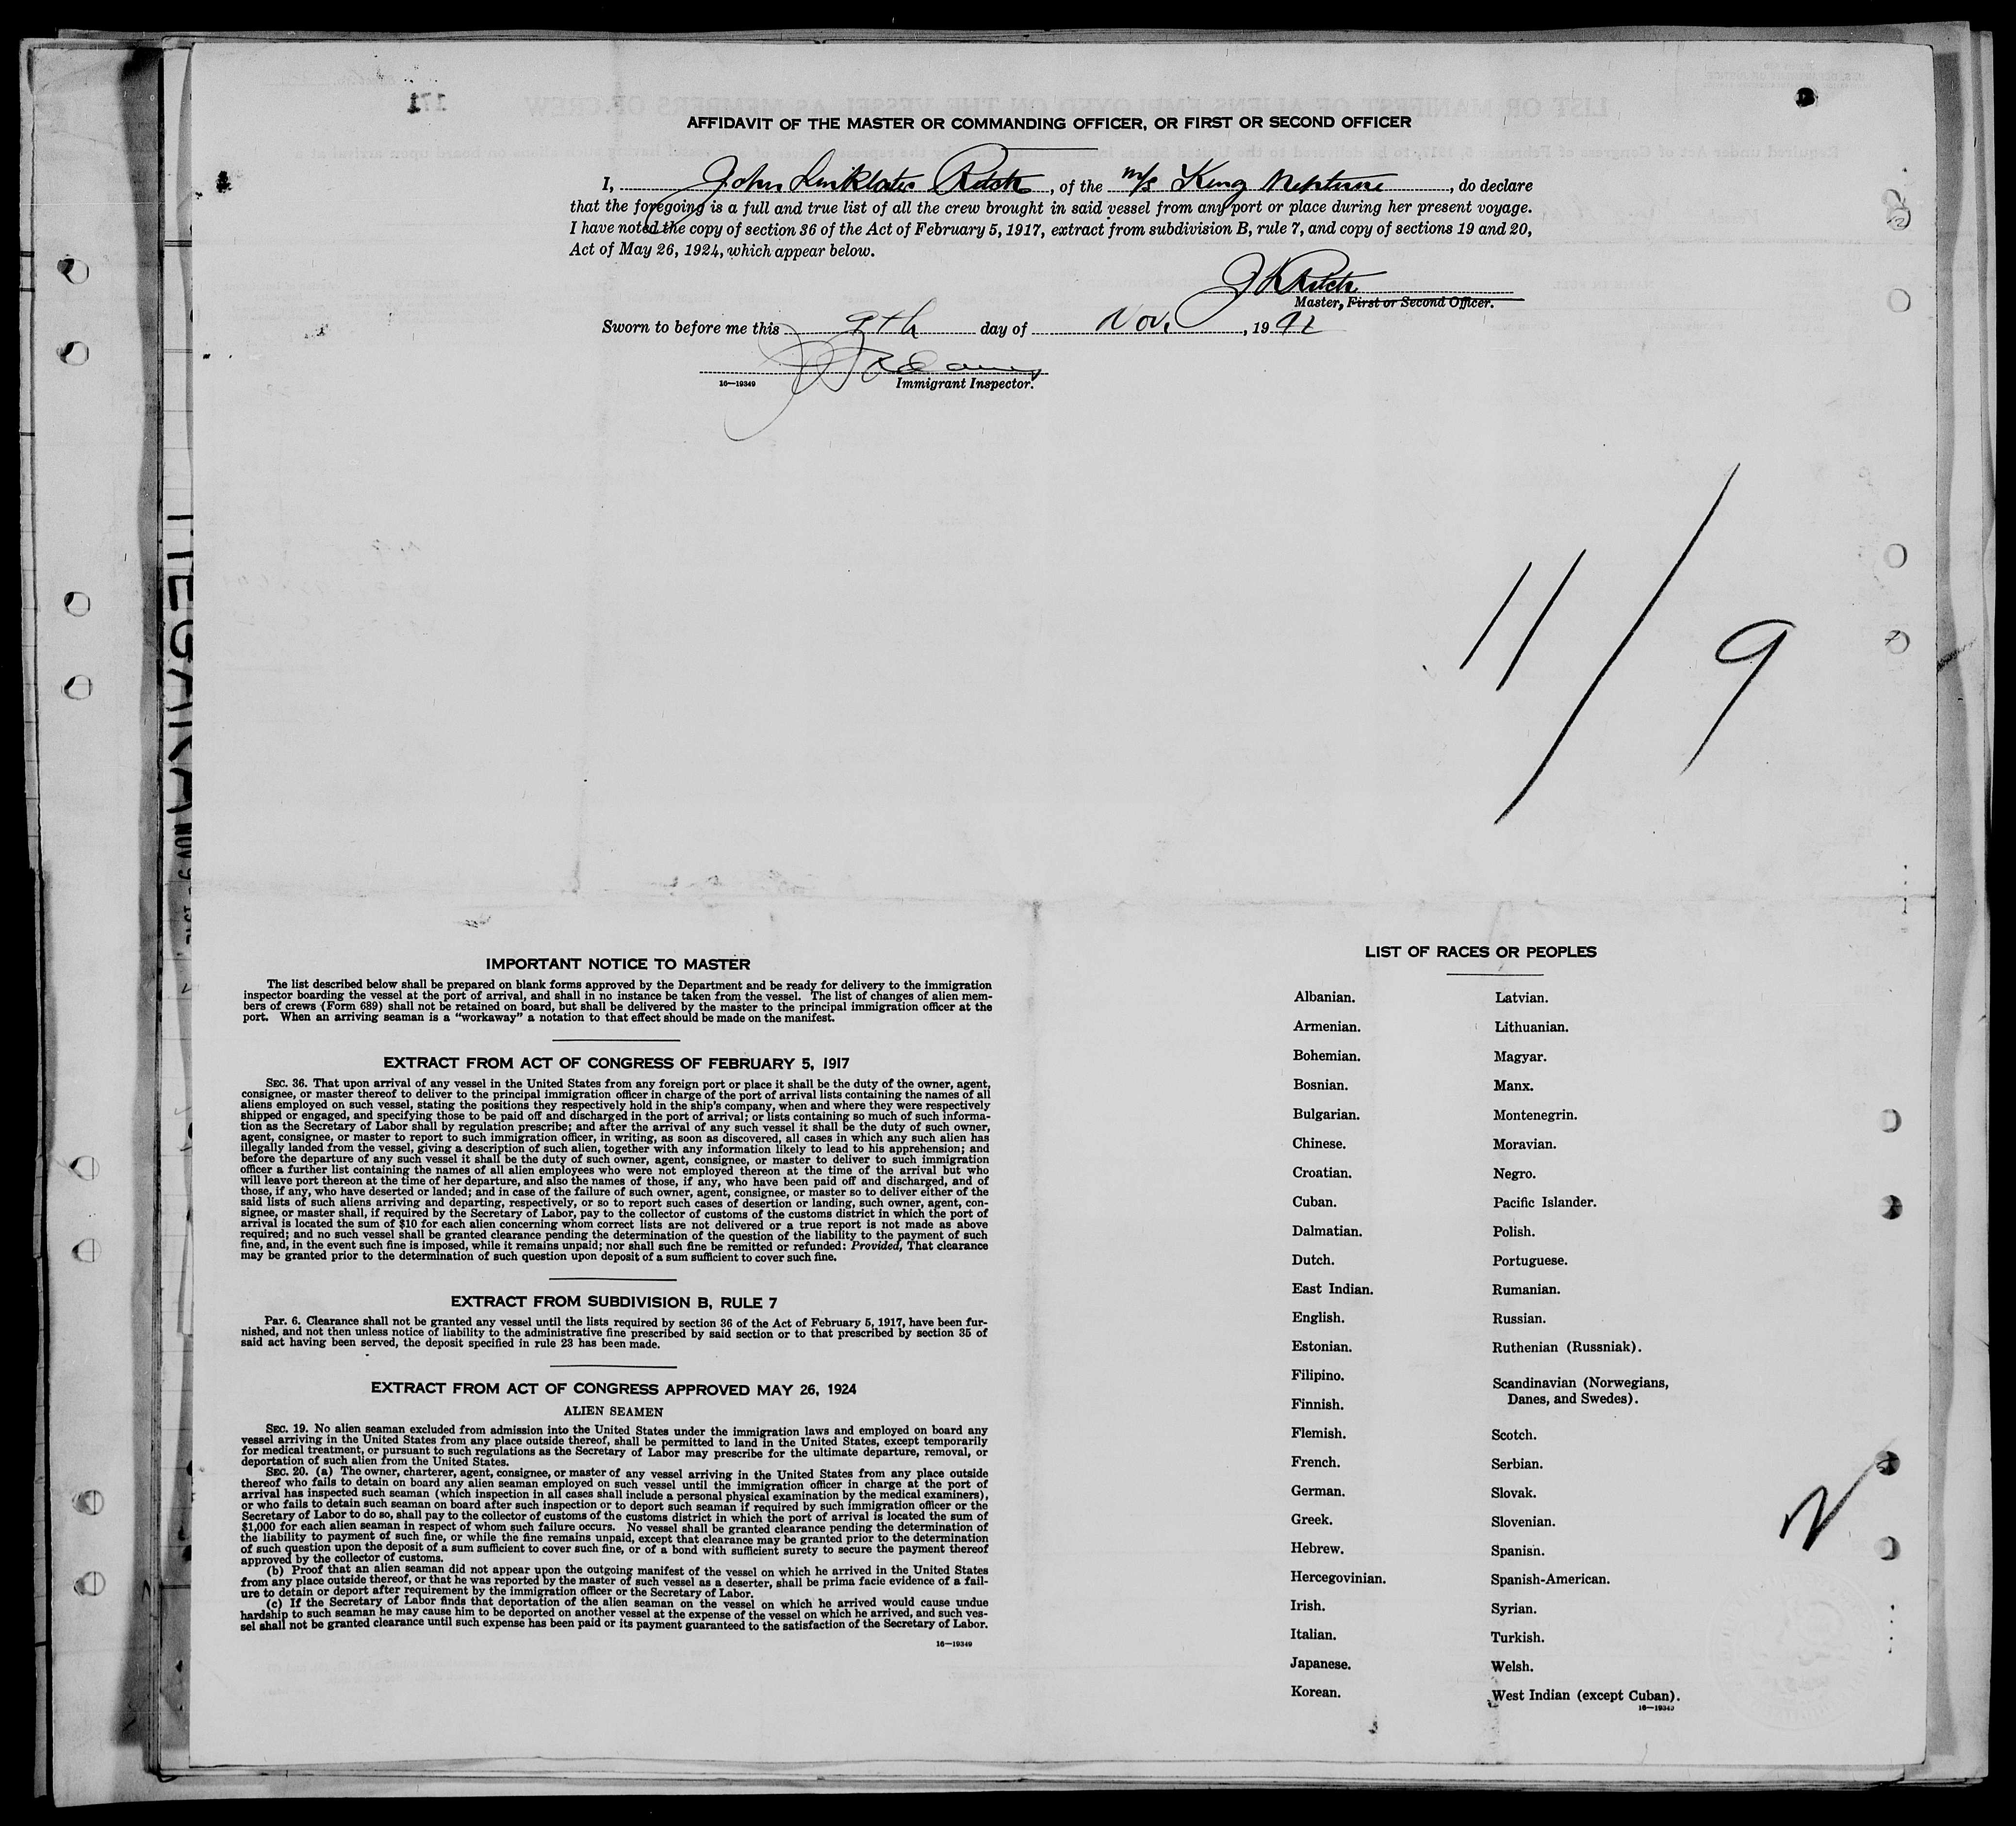 171
AFFIDAVIT OF THE MASTER OR COMMANDING OFFICER, OR FIRST OR SECOND OFFICER
I, John Linklater Ritch, of the m/s King Neptune, do declare
that the foregoing is a full and true list of all the crew brought in said vessel from any port or place during her present voyage.
I have noted the copy of section 36 of the Act of February 5, 1917, extract from subdivision B, rule 7, and copy of sections 19 and 20,
Act of May 26, 1924, which appear below.
Master, First or Second Officer.
Sworn to before me this 9th day of Nov., 19
16—19349
Immigrant Inspector.
11/9
NOV 9
IMPORTANT NOTICE TO MASTER
The list described below shall be prepared on blank forms approved by the Department and be ready for delivery to the immigration
inspector boarding the vessel at the port of arrival, and shall in no instance be taken from the vessel. The list of changes of alien mem-
bers of crews (Form 689) shall not be retained on board, but shall be delivered by the master to the principal immigration officer at the
port. When an arriving seaman is a "workaway" a notation to that effect should be made on the manifest.
EXTRACT FROM ACT OF CONGRESS OF FEBRUARY 5, 1917
SEC. 36. That upon arrival of any vessel in the United States from any foreign port or place it shall be the duty of the owner, agent,
consignee, or master thereof to deliver to the principal immigration officer in charge of the port of arrival lists containing the names of all
aliens employed on such vessel, stating the positions they respectively hold in the ship's company, when and where they were respectively
shipped or engaged, and specifying those to be paid off and discharged in the port of arrival; or lists containing so much of such informa-
tion as the Secretary of Labor shall by regulation prescribe; and after the arrival of any such vessel it shall be the duty of such owner,
agent, consignee, or master to report to such immigration officer, in writing, as soon as discovered, all cases in which any such alien has
illegally landed from the vessel, giving a description of such alien, together with any information likely to lead to his apprehension; and
before the departure of any such vessel it shall be the duty of such owner, agent, consignee, or master to deliver to such immigration
officer a further list containing the names of all alien employees who were not employed thereon at the time of the arrival but who
will leave port thereon at the time of her departure, and also the names of those, if any, who have been paid off and discharged, and of
those, if any, who have deserted or landed; and in case of the failure of such owner, agent, consignee, or master so to deliver either of the
said lists of such aliens arriving and departing, respectively, or so to report such cases of desertion or landing, such owner, agent, con-
signee, or master shall, if required by the Secretary of Labor, pay to the collector of customs of the customs district in which the port of
arrival is located the sum of $10 for each alien concerning whom correct lists are not delivered or a true report is not made as above
required; and no such vessel shall be granted clearance pending the determination of the question of the liability to the payment of such
fine, and, in the event such fine is imposed, while it remains unpaid; nor shall such fine be remitted or refunded: Provided, That clearance
may be granted prior to the determination of such question upon deposit of a sum sufficient to cover such fine.
EXTRACT FROM SUBDIVISION B, RULE 7
Par. 6. Clearance shall not be granted any vessel until the lists required by section 36 of the Act of February 5, 1917, have been fur-
nished, and not then unless notice of liability to the administrative fine prescribed by said section or to that prescribed by section 35 of
said act having been served, the deposit specified in rule 23 has been made.
EXTRACT FROM ACT OF CONGRESS APPROVED MAY 26, 1924
ALIEN SEAMEN
SEC. 19. No alien seaman excluded from admission into the United States under the immigration laws and employed on board any
vessel arriving in the United States from any place outside thereof, shall be permitted to land in the United States, except temporarily
for medical treatment, or pursuant to such regulations as the Secretary of Labor may prescribe for the ultimate departure, removal, or
deportation of such alien from the United States.
SEC. 20. (a) The owner, charterer, agent, consignee, or master of any vessel arriving in the United States from any place outside
thereof who fails to detain on board any alien seaman employed on such vessel until the immigration officer in charge at the port of
arrival has inspected such seaman (which inspection in all cases shall include a personal physical examination by the medical examiners),
or who fails to detain such seaman on board after such inspection or to deport such seaman if required by such immigration officer or the
Secretary of Labor to do so, shall pay to the collector of customs of the customs district in which the port of arrival is located the sum of
$1,000 for each alien seaman in respect of whom such failure occurs. No vessel shall be granted clearance pending the determination of
the liability to payment of such fine, or while the fine remains unpaid, except that clearance may be granted prior to the determination
of such question upon the deposit of a sum sufficient to cover such fine, or of a bond with sufficient surety to secure the payment thereof
approved by the collector of customs.
(b) Proof that an alien seaman did not appear upon the outgoing manifest of the vessel on which he arrived in the United States
from any place outside thereof, or that he was reported by the master of such vessel as a deserter, shall be prima facie evidence of a fail-
ure to detain or deport after requirement by the immigration officer or the Secretary of Labor.
(c) If the Secretary of Labor finds that deportation of the alien seaman on the vessel on which he arrived would cause undue
hardship to such seaman he may cause him to be deported on another vessel at the expense of the vessel on which he arrived, and such ves-
sel shall not be granted clearance until such expense has been paid or its payment guaranteed to the satisfaction of the Secretary of Labor.
16—19349
LIST OF RACES OR PEOPLES
Albanian.
Armenian.
Bohemian.
Bosnian.
Bulgarian.
Chinese.
Croatian.
Cuban.
Dalmatian.
Dutch.
East Indian.
English.
Estonian.
Filipino.
Finnish.
Flemish.
French.
German.
Greek.
Hebrew.
Hercegovinian.
Irish.
Italian.
Japanese.
Korean.
Latvian.
Lithuanian.
Magyar.
Manx.
Montenegrin.
Moravian.
Negro.
Pacific Islander.
Polish.
Portuguese.
Rumanian.
Russian.
Ruthenian (Russniak).
Scandinavian (Norwegians,
Danes, and Swedes).
Scotch.
Serbian.
Slovak.
Slovenian.
Spanish.
Spanish-American.
Syrian.
Turkish.
Welsh.
West Indian (except Cuban).
16—19349